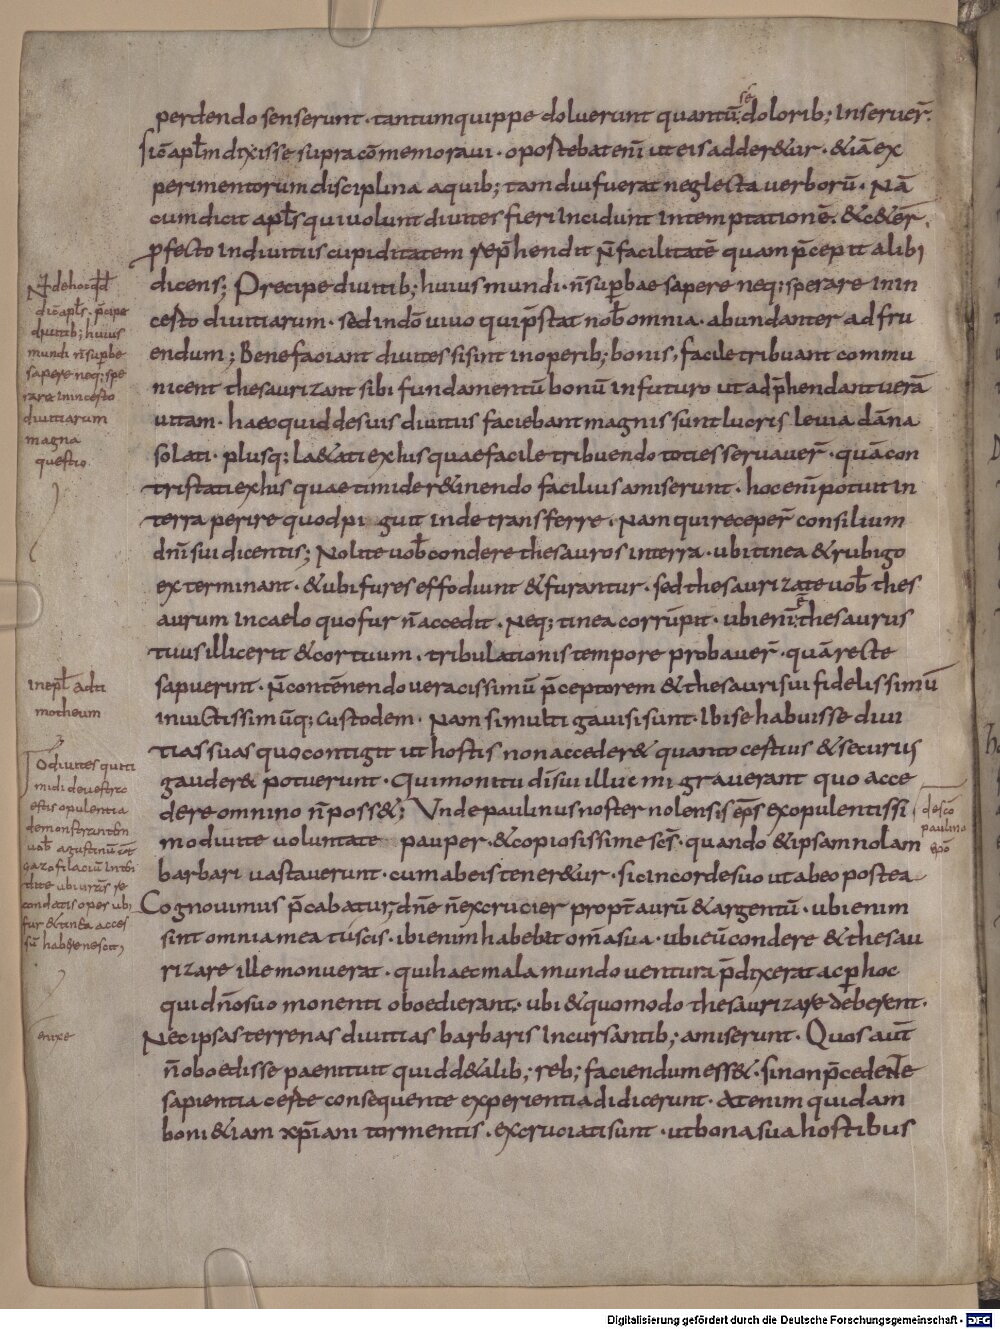 perdendo senserunt · tantum quippe doluerunt quantū se dolorib; inseruer̄.
Sic̄ apłm dixisse supra cōmemoraui · oportebat enī ut eis adder&ur · &iā ex
perimentorum disciplina a quib; tam diu fuerat neglecta uerborū · Nā
cum dicit apłs qui uolunt diuites fieri incidunt in temptationē · &c&er̄ ·
ꝓfecto in diuitiis cupiditatem rep̄hendit n̄ facilitatē quam p̄cepit alibi
dicens; Precipe diuitib; huius mundi · n̄ superbae sapere neq; sperare in in
certo diuitiarum · sed in dō uiuo qui p̄stat nob̄ omnia · abundanter ad fru
endum; Bene faciant diuites sis int in operib; bonis, facile tribuant commu
nicent thesaurizant sibi fundamentū bonū in futuro ut adp̄hendant uerā
uitam · haec quid de suis diuitiis faciebant magnis sunt lucris leuia dāna
solati · plusq; la&ati ex his quae facile tribuendo toties seruauer̄ · quā con
tristati ex his quae timide r&inendo facilius amiserunt · hoc enī potuit in
terra perire quod pi guit inde transferre · Nam qui receper̄ consilium
dn̄i sui dicentis; Nolite uob̄ condere thesauros in terra · ubi tinea & rubigo
exterminant · & ubi fures effodiunt & furantur · sed thesaurizate uob̄ thes
aurum in caelo quo fur n̄ accedit · Neq; tinea corrūpit · ubi enī ē thesaurus
tuus illic erit & cor tuum · tribulationis tempore probauer̄ · quā recte
sapuerint · n̄ contēnendo ueracissimū p̄ceptorem & thesauri sui fidelissimū
inuictissimūq; custodem · Nam si multi gauisi sunt · ibi se habuisse diui
tias suas quo contigit ut hostis non acceder& quanto certius & securus
gauder& potuerunt · Qui monitu dī sui illuc migrauerant quo acce
dere omnino n̄ poss&; Vnde paulinus noster nolensis ep̄s ex opulentissi
mo diuite uoluntate pauper · & copiosissime sc̄s · quando & ipsam nolam
barbari uastauerunt · cum ab eis tener&ur · sic in corde suo ut ab eo postea
Cognouimus p̄cabatur; dn̄e n̄ excrucier propt̄ aurū & argentū · ubi enim
sint omnia mea tu scis · ibi enim habebat om̄a sua · ubi eū condere & thesau
rizare ille monuerat · qui haec mala mundo uentura p̄dixerat ac ꝑ hoc
qui dn̄o suo monenti oboedierant · ubi & quomodo thesaurizare deberent ·
Nec ipsas terrenas diuitias barbaris incursantib; amiserunt · Quos aut̄
n̄ oboedisse paenituit quid d& alib; reb; faciendum ess& · si non p̄cedente
sapientia certe consequente experientia didicerunt · At enim quidam
boni &iam xp̄iani tormentis · excruciati sunt · ut bona sua hostibus
de hoc qđ
dic̄ apłs · p̄cipe
diuitib; huius
mundi n̄ supbe
sapere neq; spe
rare in incerto
diuitiarum
magna
questio
in epł ad ti
motheum
O diuites qui ti
midi de uestro
estis opulentia
fur & tinea acces
sū habere nescit,
de sc̄o
paulino
ep̄o
Digitalisierung gefördert durch die Deutsche Forschungsgemeinschaft - DFG